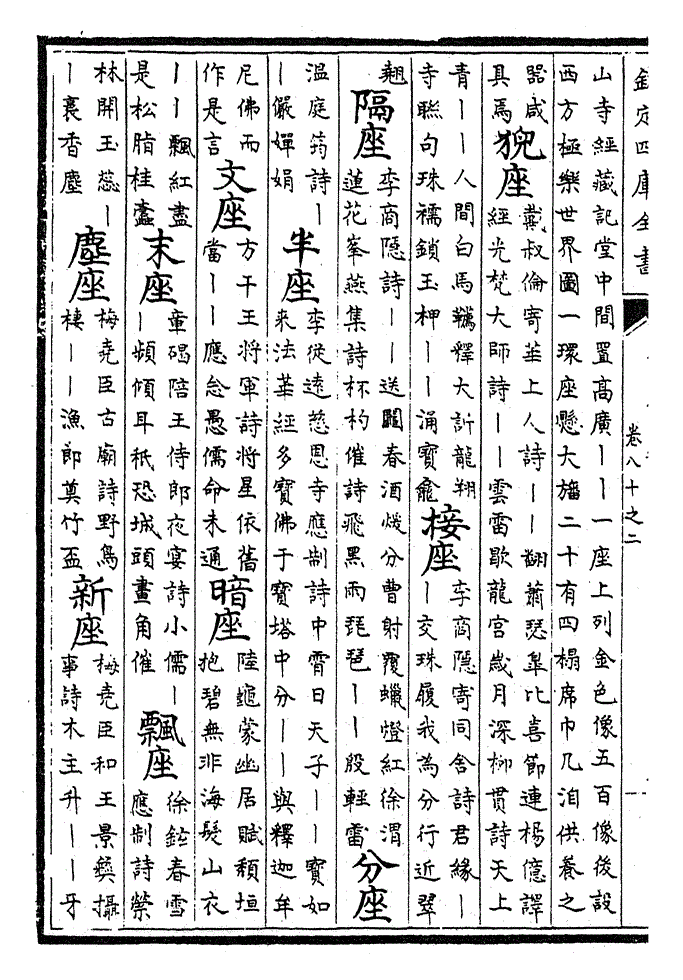 欽定四庫全書
卷八十之二
山寺經藏記堂中間置高廣丨丨一座上列金色像五百像後設
西方極樂世界圖一環座懸大旛二十有四榻席巾几洎供養之
器咸
具焉
猊座
戴叔倫寄華上人詩丨丨翻蕭瑟皐比喜節連楊億譯
經光梵大師詩丨丨雲雷歇龍宮歲月深柳貫詩天上
青丨丨人間白馬韉釋大訢龍翔
寺聯句珠襦鎖玉柙丨丨涌寶龕
接座
李商隱寄同舍詩君緣丨
丨交珠履我為分行近翠
翹
隔座
李商隱詩丨丨送鬮春酒煖分曹射覆蠟燈紅徐渭
蓮花峯燕集詩杯杓催詩飛黑雨琵琶丨丨殷輕雷
分座
溫庭筠詩丨
丨儼嬋娟
半座
李從遠慈恩寺應制詩中霄日天子丨丨寶如
來法華經多寶佛于寶塔中分丨丨與釋迦牟
尼佛而
作是言
文座
方干王將軍詩將星依舊
當丨丨應念愚儒命未通
暗座
陸龜蒙幽居賦頽垣
抱碧無非海髮山衣
丨丨飄紅盡
是松脂桂蠹
末座
章碣陪王侍郎夜宴詩小儒丨
丨頻傾耳秪恐城頭畫角催
飄座
徐鉉春雪
應制詩縈
林開玉蕊丨
丨裛香塵
塵座
梅堯臣古廟詩野鳥
棲丨丨漁郎奠竹盃
新座
梅堯臣和王景彞攝
事詩木主升丨丨牙